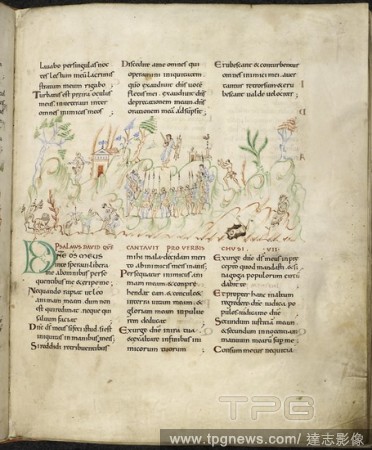 Lauabo persingulas noc
tes lectum meum lacrimis
stratum meum rigabo;
Turbatus est prae ira oculus
meus. inueteraui inter
omnes inimicos meos
Discedite ame omnes qui
operamini iniquitatem
exaudiuit dns uocē
fletus mei. exaudiuit dns
deprecationem meam. dns
orationem meam
Erubescant & conturbentur
omnes inimici mei. auer
tantur retrorsum & eru
bescant ualde uelociter
PSALMUS DAVID QUĒ CANTAVIT PRO VERBIS CHUSI VII
DNE DS MEUS
inte speraui libera
me abomnibus perse
quentibus me & eripe me;
Nequando rapiat ut leo
animam meam dum non
est quiredimat. neque qui
saluum faciat
Dne ds meus si feci istud. si est
iniquitas in manibus meis;
Si reddidi retribuentibus
mihi mala. decidam meri
to ab inimicis meis inanis;
Persequatur inimicus ani
mam meam & compre
hendat eam. & conculc&
interra uitam meam &
gloriam meam inpulue
rem deducat
Exurge dne inira tua
& exaltare infinibus ini
micorum meorum
Exurge dne ds meus in prę
cepto quod mandasti. & si
nagoga populorum circū
dabit te
Et propter hanc inaltum
regredere dns iudicat po
pulos
Secundum iustitiam meam
& secundum innocentiam
manuum mearum sup me
Consumetur nequitia
TPG
www.tpgnews.com/ 達志影像